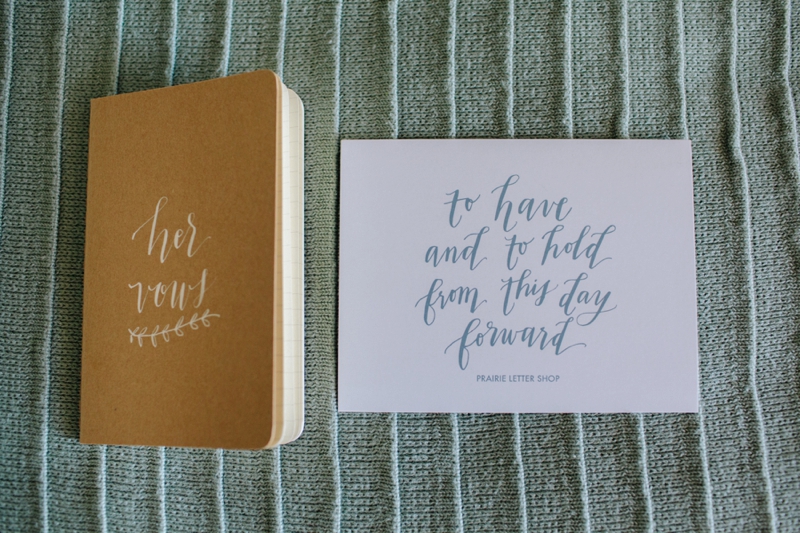 her
vows
to have
and to hold
from this day
forward
PRAIRIE LETTER SHOP